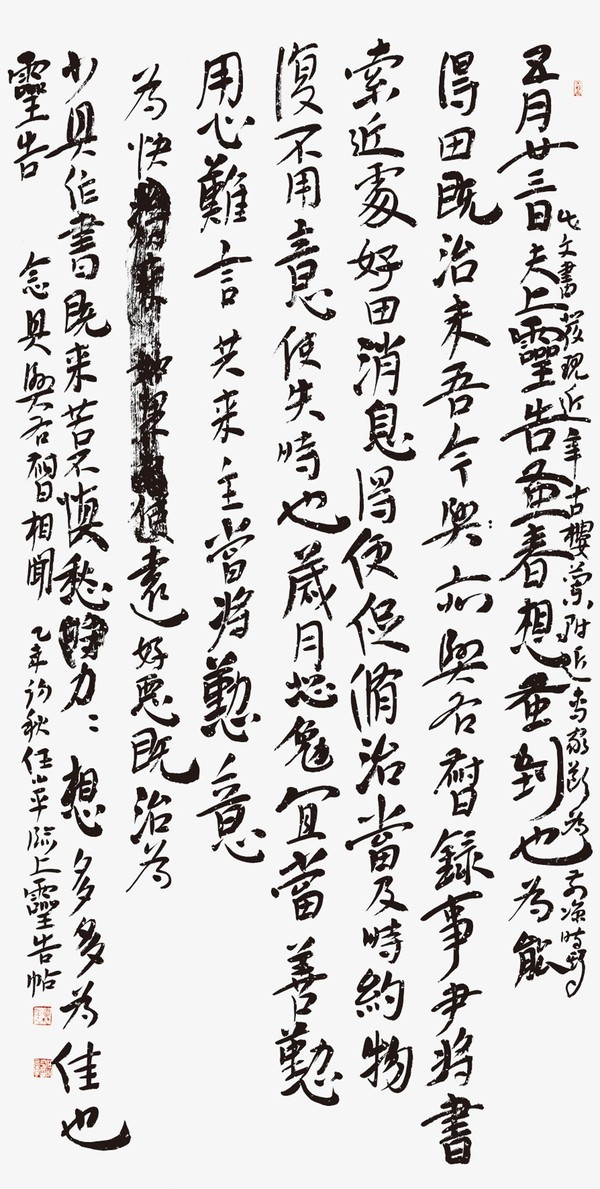 此文書發現近年古樓蘭附近專家斷為前涼時
五月廿三日夫上靈告蚤春想蚤到也為能
得田既治未吾今與亦與右督錄事尹將書
索近處好田消息得便促脩治當及時約物
復不用意使失時也歲月忽兔宜當善懃
用心難言共來主當將懃意
為快使還好惡既治為
少具作書既來苦不慎愁力想多多為佳也
靈告
念具與右督相聞
年初秋任平臨上靈告帖